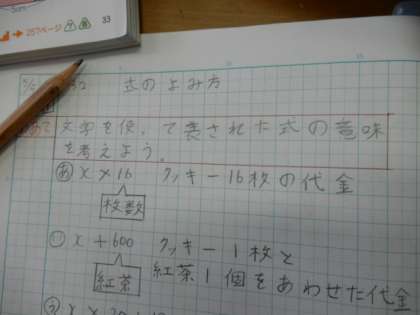 257ページ
33
式のよみ方
めあて
文字を使って表された式の意味
を考えよう。
あ x×16 クッキー16枚の代金
枚数
い x+600 クッキー1枚と
紅茶1個をあわせた代金
紅茶